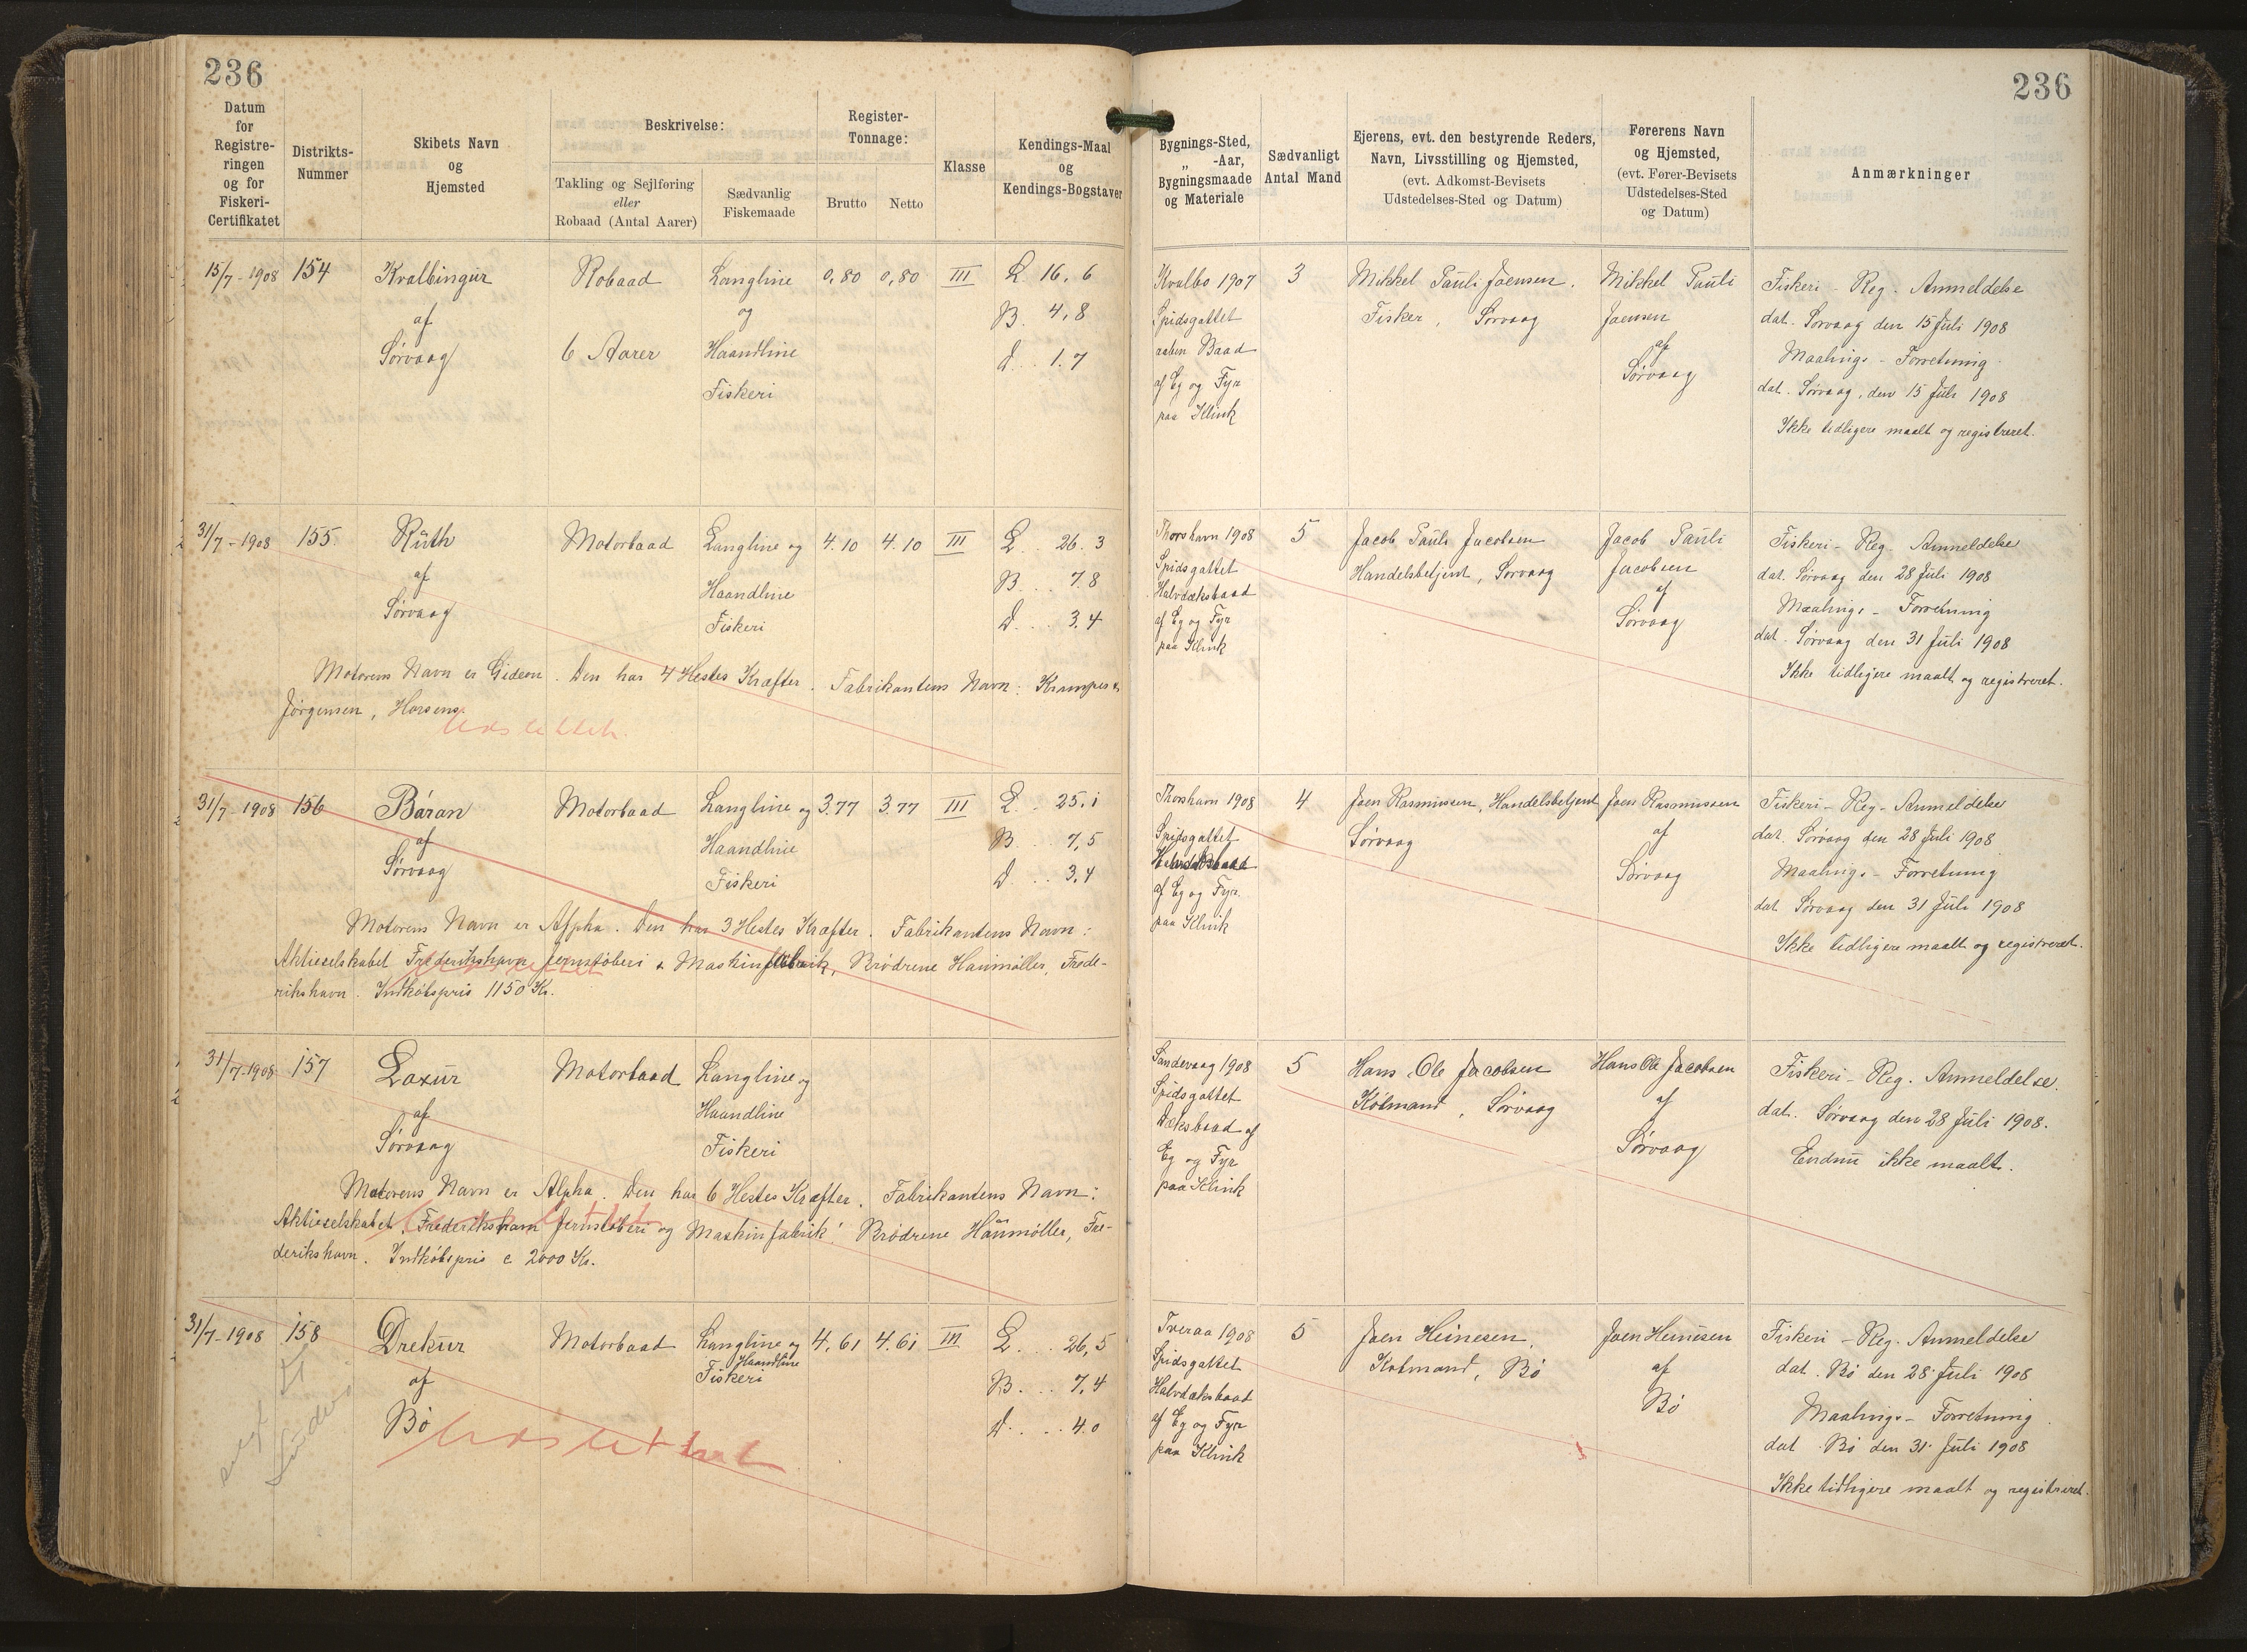 236
236
Datum
for
Registre-
ringen
og for
Fiskeri-
Certifikatet
Distrikts-
Nummer
Skibets Navn
og
Hjemsted
Beskrivelse:
Takling og Sejlføring
eller
Robaad (Antal Aarer)
Sædvanlig
Fiskemaade
Register-
Tonnage:
Brutto
Netto
Klasse
Kendings-Maal
og
Kendings-Bogstaver
Bygnings-Sted,
„ -Aar,
Bygningsmaade
og Materiale
Sædvanligt
Antal Mand
Ejerens, evt. den bestyrende Reders,
Navn, Livsstilling og Hjemsted,
(evt. Adkomst-Bevisets
Udstedelses-Sted og Datum)
Førerens Navn
og Hjemsted,
(evt. Fører-Bevisets
Udstedelses-Sted
og Datum)
Anmærkninger
15/7-1908
154
Kvalbingur
af
Sørvaag
Robaad
6 Aarer
Langline
og
Haandline
Fiskeri
0,80
0,80
III
L. 16.6
B. 4,8
D... 1.7
Kvalbø 1907
Spidsgattet
aaben Baad
af Eg og Fyr
paa Klink
3
Mikkel Pauli Joensen.
Fisker, Sørvaag
Mikkel Pauli
Joensen
af
Sørvaag
Fiskeri-Reg. Anmeldelse
dat. Sørvaag den 15 Juli 1908
Maalings-Forretning
dat. Sørvaag, den 15 Juli 1908
Ikke tidligere maalt og registreret.
31/7-1908
155.
Ruth
af
Sørvaag
Motorbaad
Langline og
Haandline
Fiskeri
4.10
4.10
III
L... 26.3
B... 7.8
D.... 3.4
Motorens Navn er Gideon. Den har 4 Hestes Kræfter. Fabrikantens Navn: Krumper &
Jørgensen, Horsens.
Udslettet
Thorshavn 1908
Spidsgattet
Halvdæksbaad
af Eg og Fyr
paa Klink
5
Jacob Pauli Jacobsen
Handelsbetjent, Sørvaag
Jacob Pauli
Jacobsen
af
Sørvaag
Fiskeri-Reg. Anmeldelse
dat. Sørvaag den 28 Juli 1908
Maalings-Forretning
dat. Sørvaag den 31 Juli 1908
Ikke tidligere maalt og registreret.
31/7-1908
156
Báran
af
Sørvaag
Motorbaad
Langline og
Haandline
Fiskeri
3.77
3.77
III
L.. 25.1
B... 7,5
D... 3.4
Motorens Navn er Alpha. Den har 3 Hestes Kræfter. Fabrikantens Navn:
Aktieselskabet Frederikshavn Jernstøberi & Maskinfabrik, Brødrene Houmøller, Frede-
rikshavn. Indkøbspris 1150 Kr.
Udslettet
Thorshavn 1908
Spidsgattet
af Eg og Fyr
paa Klink
4
Joen Rasmussen, Handelsbetjent
Sørvaag
Joen Rasmussen
af
Sørvaag
Fiskeri-Reg-Anmeldelse
dat. Sørvaag den 28 Juli 1908
Maalings-Forretning
dat. Sørvaag den 31 Juli 1908
Ikke tidligere maalt og registreret.
31/7-1908
157
Laxur
af
Sørvaag
Motorbaad
Langline og
Haandline
Fiskeri
Motorens Navn er Alpha. Den har 6 Hestes Kræfter. Fabrikantens Navn:
Aktieselskabet Frederikshavn Jernstøberi og Maskinfabrik! Brødrene Houmøller, Fre-
derikshavn. Indkøbspris c 2000 Kr.
Sandevaag 1908
Spidsgattet
Dæksbaad af
Eg og Fyr
paa Klink
5
Hans Ole Jacobsen
Købmand, Sørvaag
Hans Ole Jacobsen
af
Sørvaag
Fiskeri-Reg. Anmeldelse.
dat. Sørvaag den 28 Juli 1908.
Endnu ikke maalt.
31/7-1908
158
Drekur
af
Bø
Motorbaad
Langline og
Haandline
Fiskeri
4,61
4.61
III
L.... 26,5
B.... 7,4
D..... 4.0
Udslettet
Tveraa 1908
Spidsgattet
Halvdæksbaad
af Eg og Fyr
paa Klink
5
Joen Heinesen,
Købmand, Bø
Joen Heinesen
af
Bø
Fiskeri-Reg. Anmeldelse
dat. Bø den 28. Juli 1908
Maalings-Forretning
dat. Bø den 31. Juli 1908
Ikke tidligere maalt og registreret.